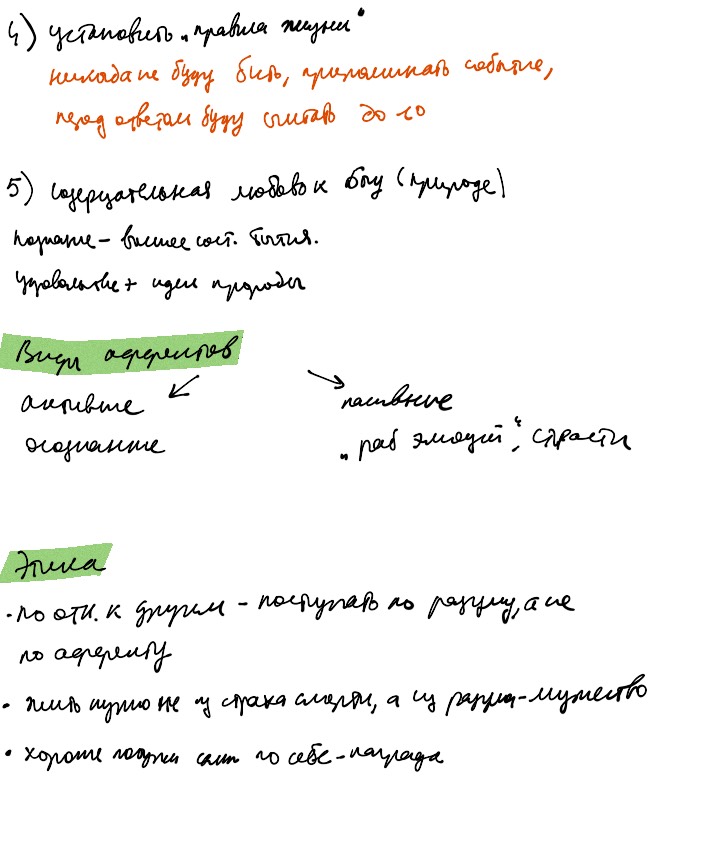 4) установить „правила жизни“
никогда не буду бить, припоминать событие,
перед ответом буду считать до 10
5) созерцательная любовь к богу (природе)
познание – высшее сост. бытия.
удовольствие + идеи природы
Виды аффектов
активные
пассивные
осознание
„раб эмоций“, страсти
Этика
• по отн. к другим – поступать по разуму, а не
по аффекту
• жить нужно не из страха смерти, а из разума – мужество
• хорошие поступки сами по себе – награда